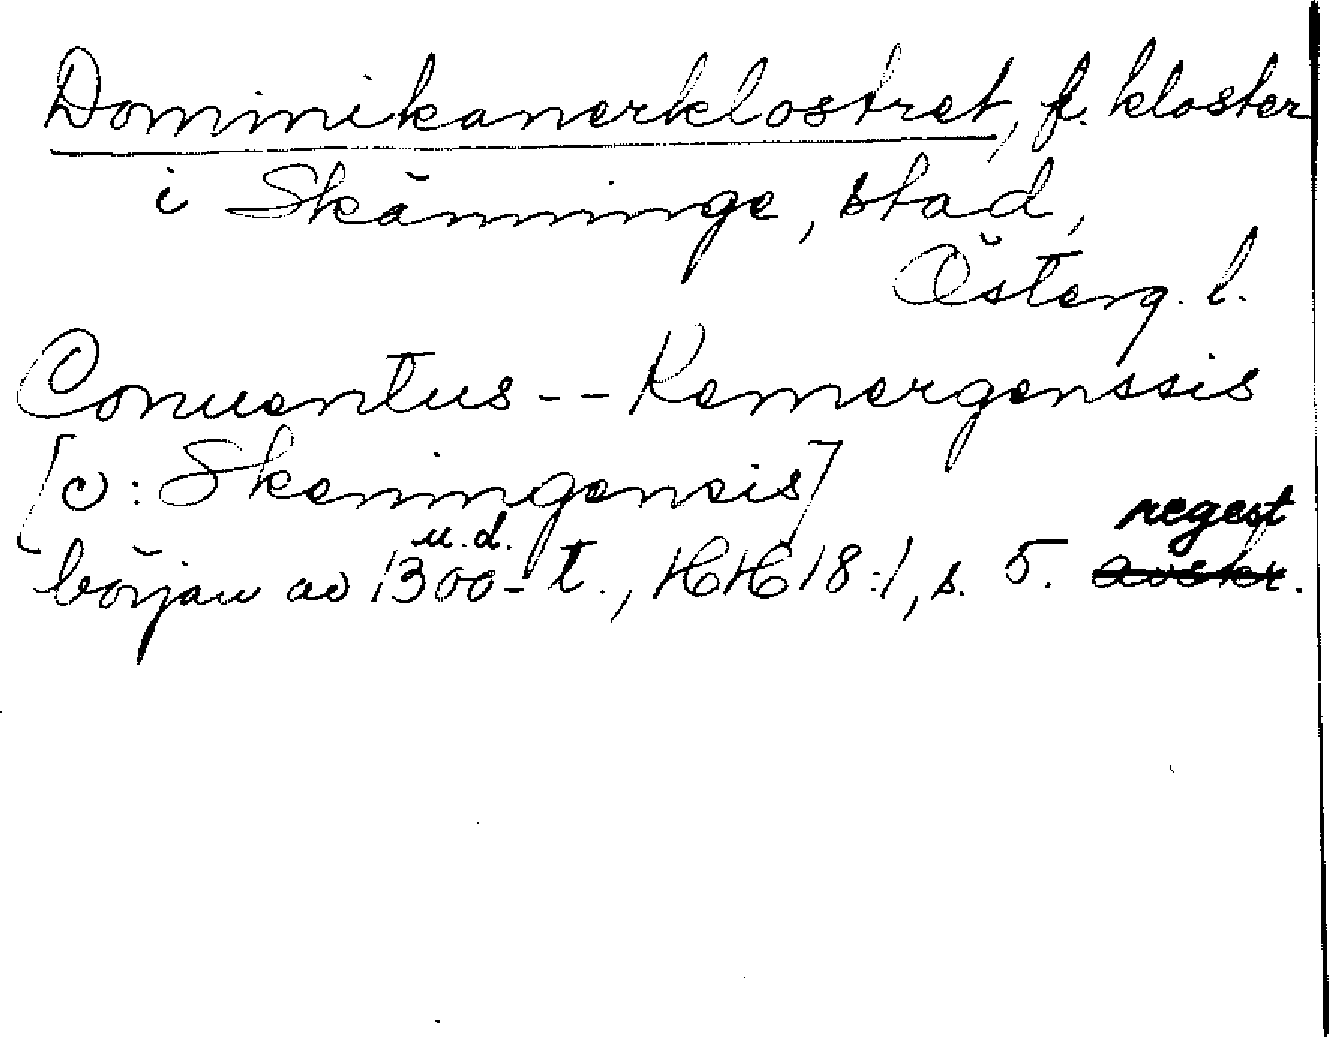 Dominikanerklostret, f. kloster
i Skänninge, stad,
Österg. l.
Conuentus -- Kemergenssis
[ɔ: Skeningensis]
u.d. regest
början av 1300-t., HH 18:1, s. 5. avskr.